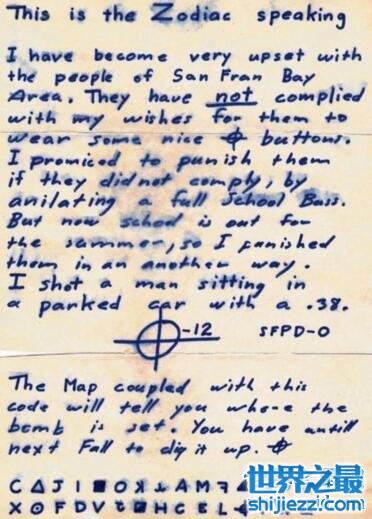 This is the Zodiac speaking
I have become very upset with
the people of San Fran Bay
Area. They have not complied
with my wishes for them to
wear some nice ⌖ buttons.
I promiced to punish them
if they did not comply, by
anilating a full School Buss.
But now school is out for
the summer, so I punished
them in an another way.
I shot a man sitting in
a parked car with a .38.
⌖-12 SFPD-0
The Map coupled with this
code will tell you where the
bomb is set. You have untill
next Fall to dig it up. ⌖
C Δ J I ■ O
X ⊙ F D V
H C E L
世界之最
shijiezz.com